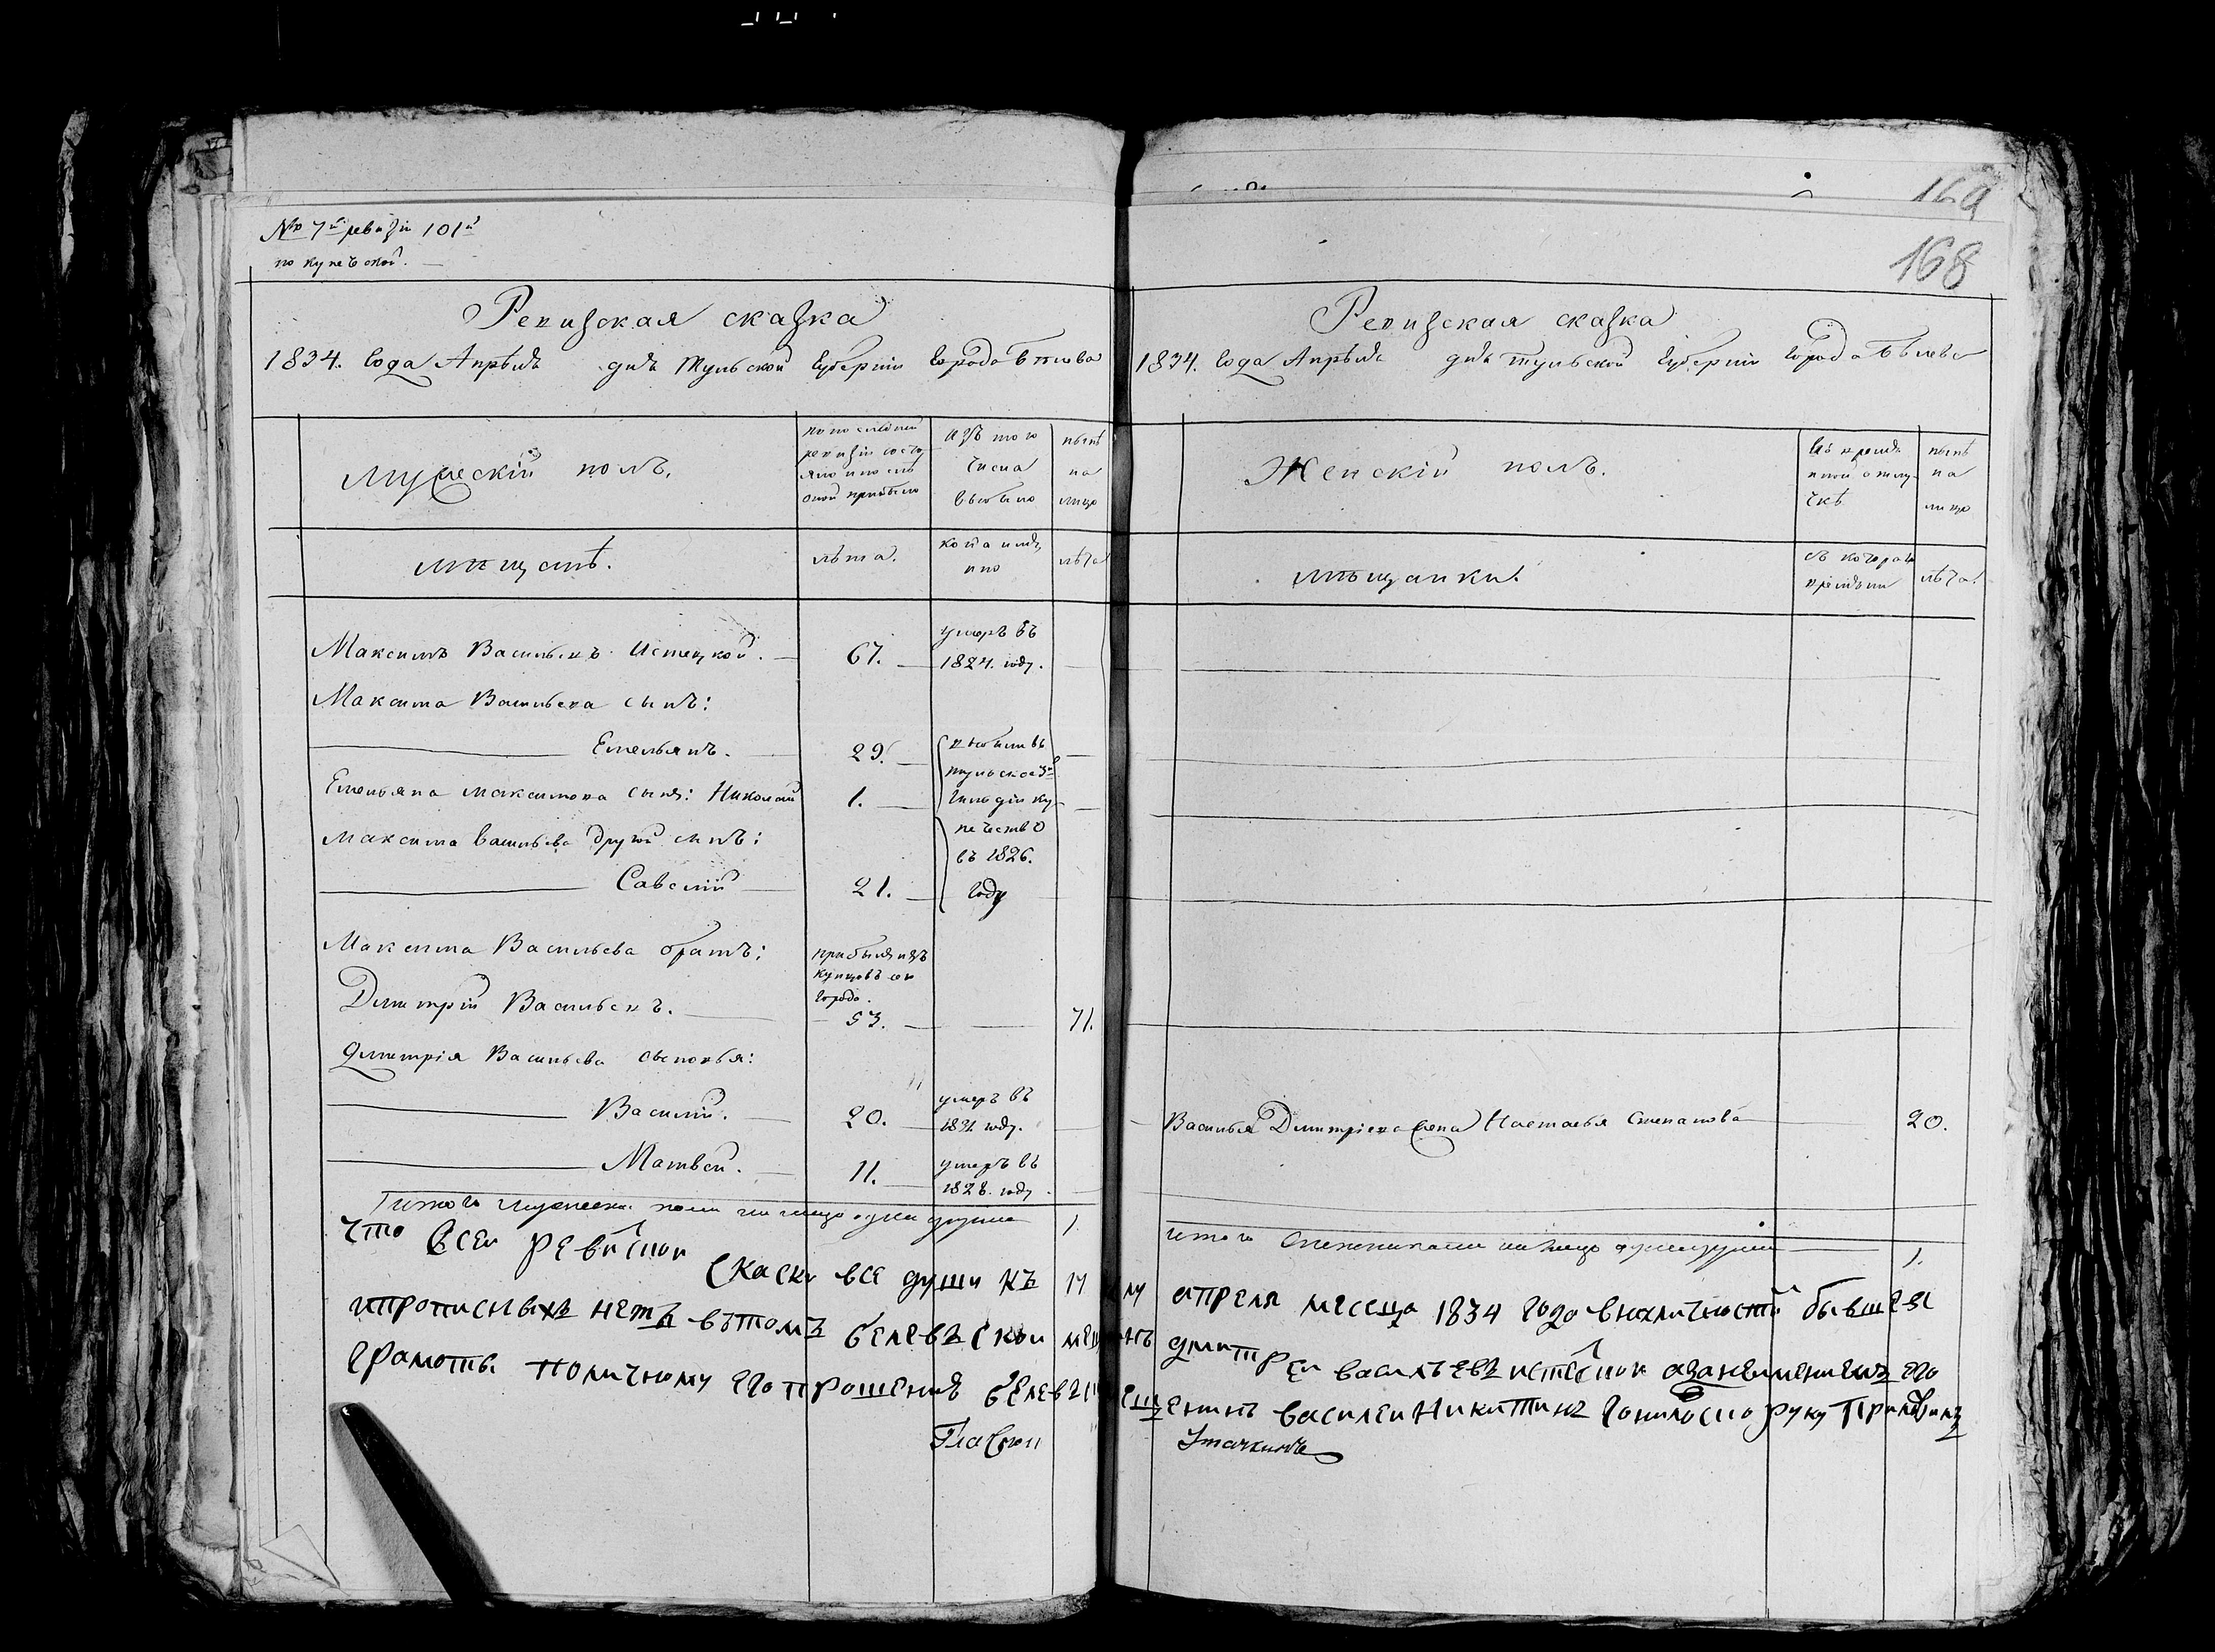 № 7й ревизіи 101й
по купеческой.
169
168
Ревизская сказка
1834. Года Апрѣля дня Тульской Губерніи Города Бѣлева
Мужескій полъ.
по последней
ревизіи состо
яло и после
оной прибыло
изъ того
числа
выбыло
нынѣ
на
лицо
мѣщанѣ.
лѣта.
когда имян
но
лѣта
Максимъ Васильевъ Истецкой.
67.
умеръ въ
1824. году.
Максима Васильева сынъ:
Емельянъ.
29.
выбыли въ
тульское 3й
Гильдіи ку
печество
въ 1826.
Году
Емельяна Максимова сынъ: Николай
1.
Максима Васильева другой сынъ:
Савелій
21.
Максима Васильева братъ:
прибылъ изъ
купцовъ сего
города.
Дмитрій Васильевъ.
53.
71.
Дмитрія Васильева сыновья:
Василій.
20.
умеръ въ
1831 году.
Матвей.
11.
умеръ въ
1828. году
Итого мужеска пола на лицо одна душа
1
Ревизская сказка
1834. Года Апрѣля дня Тульской Губерніи Города Бѣлева
Женскій полъ.
въ времян
ной отлу
чкѣ
нынѣ
на
лицо
мѣщанки.
съ котораго
времяни
лѣта.
Василья Дмитріева жена Настасья Степанова
20.
итого женскаго на лицо одна душа
1.
что всеи ревиской скаски все души къ апреля месеца 1834 года вналичности бывшея
ипрописныхъ нетъ втомъ белевскои дмитреи васильевъ истецкои азанеимениемъ его
грамоты поличному его прошению белевски василеи Никитинъ руку приложилъ
Гласной